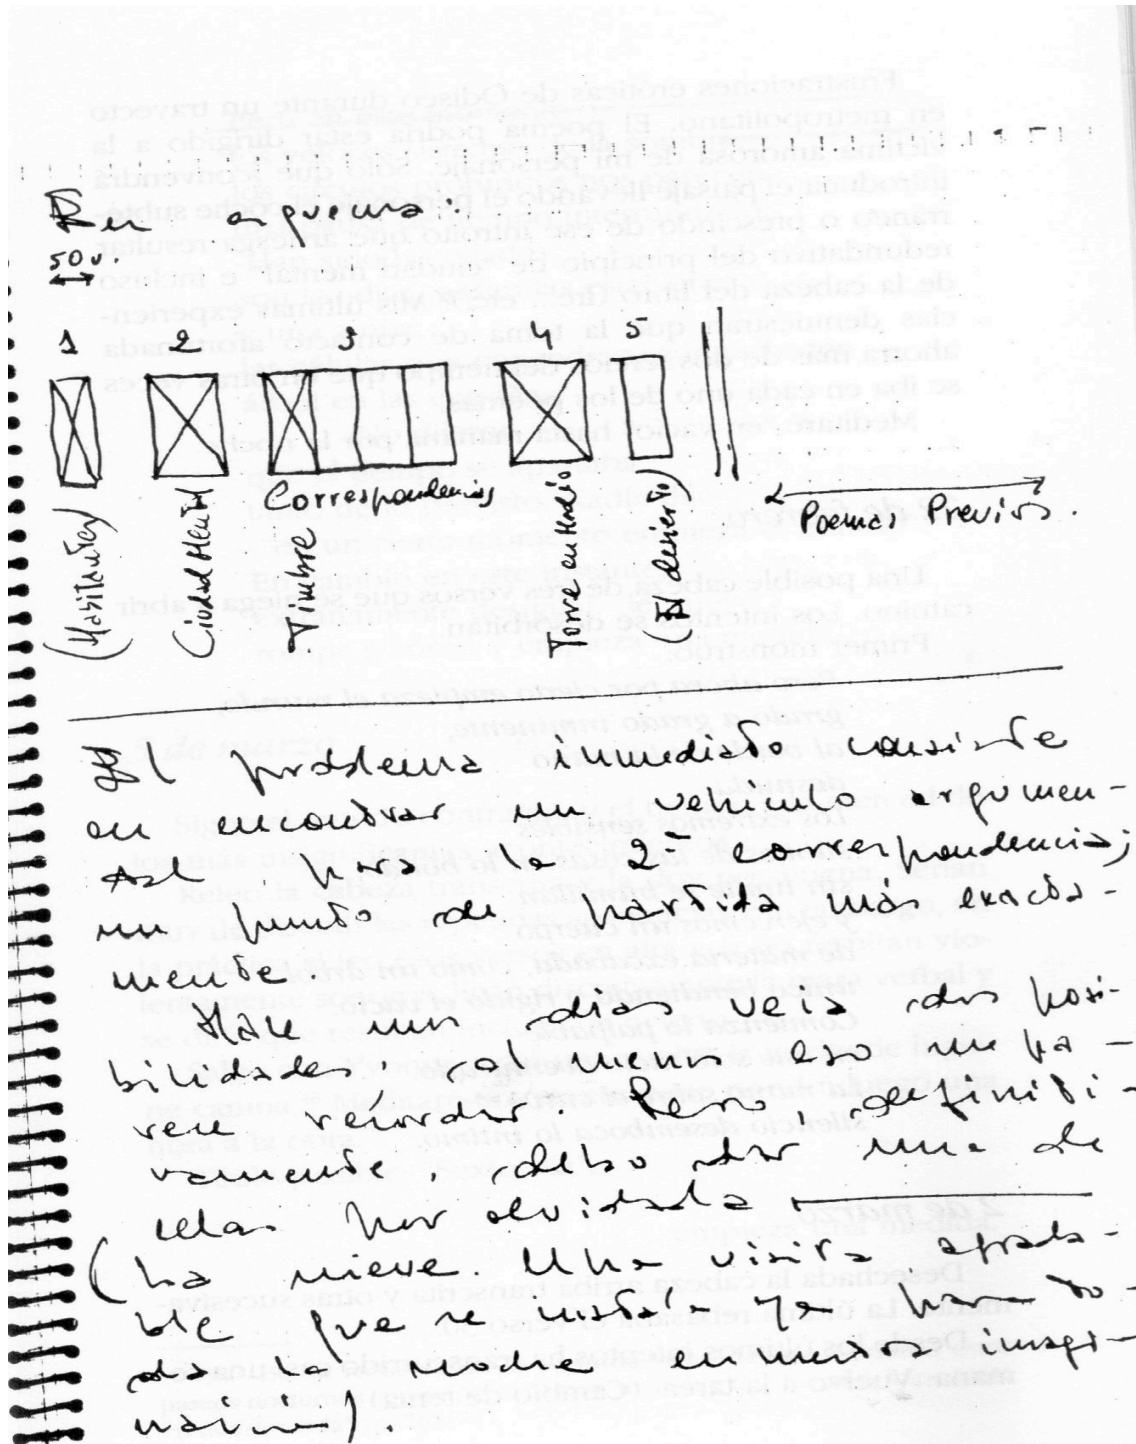 a poema:
50 v.
1 2 3 4 5
(Habitantes)
(Ciudad Mental)
Timbre
Correspondencias
Torre en Medio
desierto)
Poemas Previos.
El problema inmediato consiste
en encontrar un vehículo argumen-
tal para la 2ª correspondencia;
un punto de partida más exacta-
mente.
Hace unos días veía dos posi-
bilidades, al menos eso me pa-
rece recordar. Pero, definiti-
vamente, debo dar una de
ellas por olvidada
(La nieve. Una visita agrada-
ble que se instala por to-
da la noche en nuestros imagi-
narios).